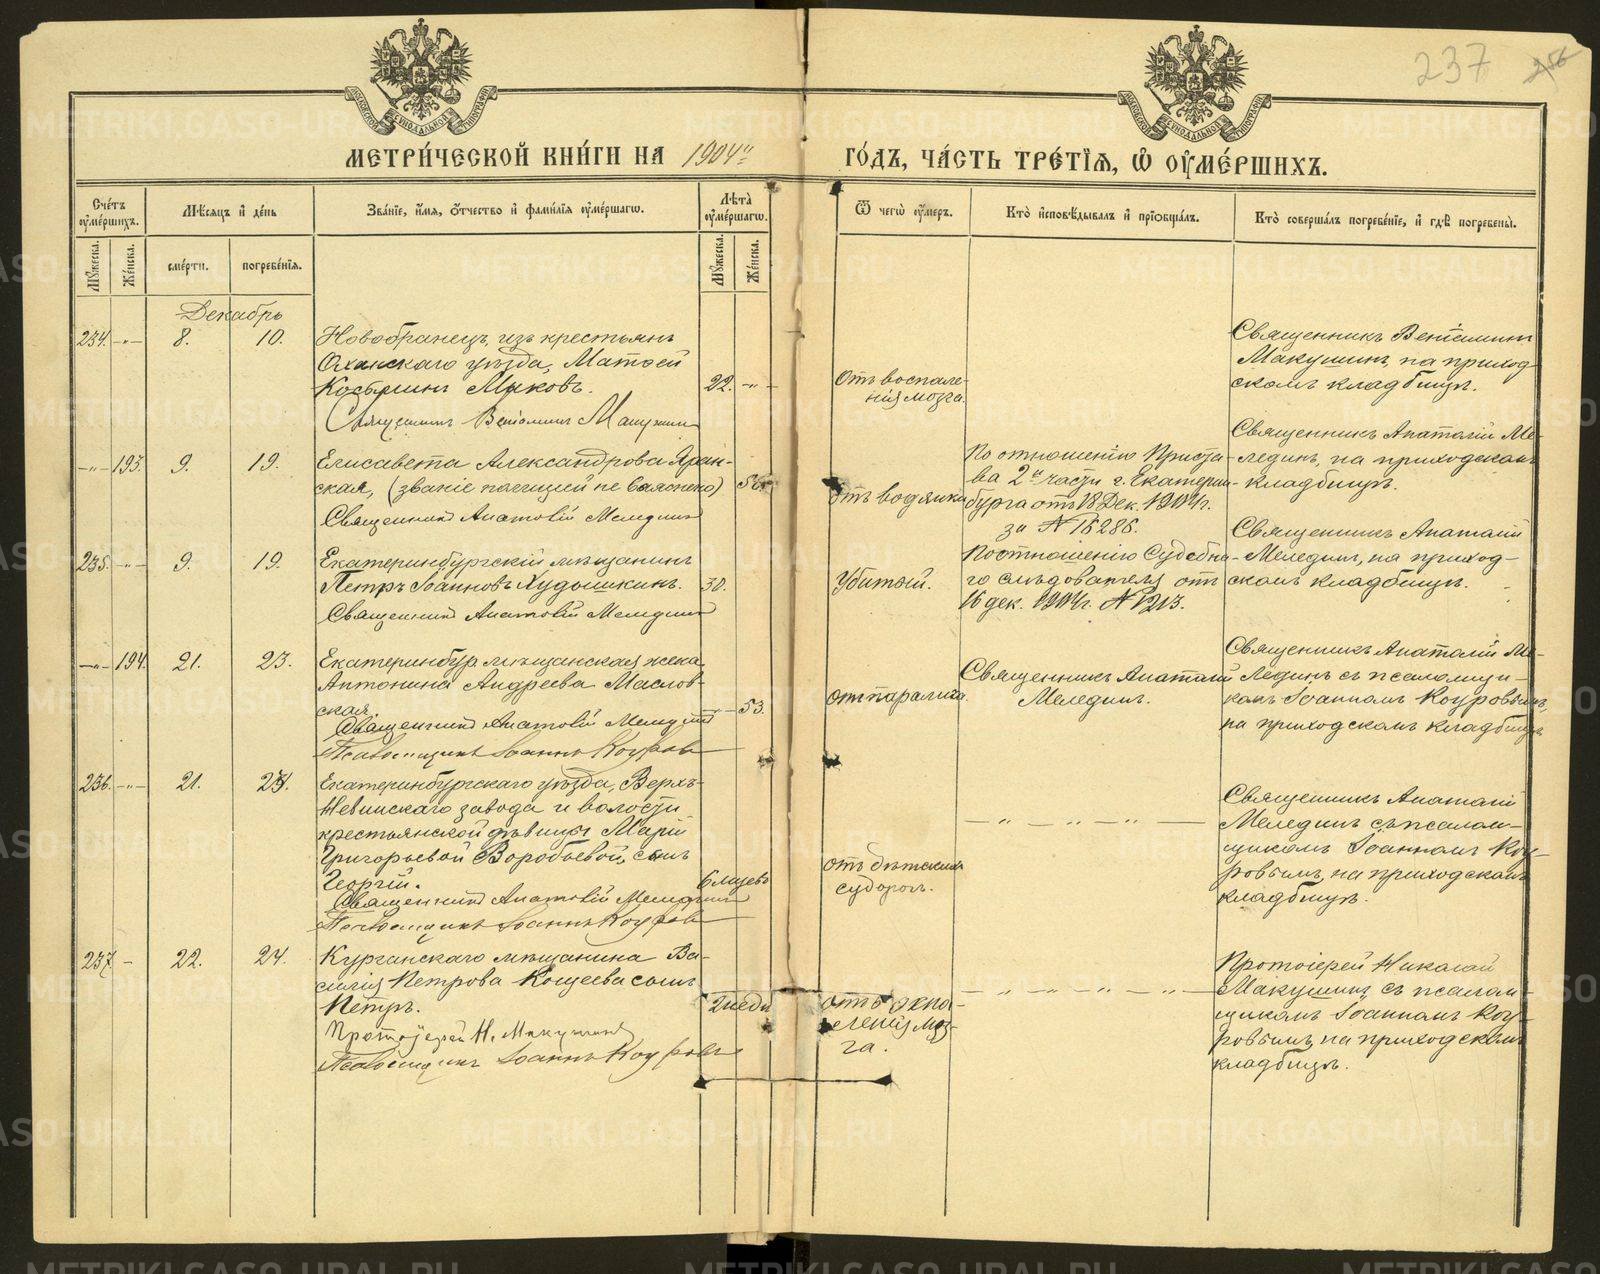 237
МЕТРИ́ЧЕСКОЙ КНИ́ГИ НА 1904й
ГО́ДЪ, ЧА́СТЬ ТРЕ́ТІѦ, Ѡ҆ ОУ҆МЕ́РШИХЪ.
Сче́тъ оу҆ме́ршихъ.
Мѣ́сяцъ и҆ де́нь
Зва́ніе, и҆́мя, ѻ҆́тчество и҆ фами́лія оу҆ме́ршагѡ.
Лѣ́та оу҆ме́ршагѡ.
Ѿ чегѡ̀ оу҆́меръ.
Кто̀ и҆сповѣ́дывалъ и҆ прїѡбща́лъ.
Кто̀ соверша́лъ погребе́ніе, и҆ гдѣ̀ погребены̀.
Мꙋ́жеска.
Же́нска.
сме́рти.
погребе́нія.
Мꙋ́жеска.
Же́нска.
Декабрь
234. -"- 8. 10.
Новобранецъ, изъ крестьянъ
Оханскаго уѣзда, Матѳей
Костылинъ Мяковъ.
22. -"-
Священникъ Веніаминъ Макушинъ
Отъ воспале-
нія мозга.
Священникъ Веніаминъ
Макушинъ, на приход-
скомъ кладбищѣ.
-"- 193. 9. 19.
Елисавета Александрова Яран-
ская, (званіе полиціей не выяснено)
Священникъ Анатолій Мелединъ
отъ водянки
По отношенію Приста-
ва 2й части г. Екатерин-
бурга отъ 18 Дек. 1904 г.
за № 15286.
Священникъ Анатолій Ме-
лединъ, на приходскомъ
кладбищѣ.
235. -"- 9. 19.
Екатеринбургскій мѣщанинъ
Петръ Іоанновъ Худышкинъ.
30.
Священникъ Анатолій Мелединъ
Убитый.
По отношенію Судебна-
го слѣдователя отъ
16 дек. 1904 г. № 1213.
Священникъ Анатолій
Мелединъ, на приход-
скомъ кладбищѣ.
-"- 194. 21. 23.
Екатеринбур. мѣщанская жена
Антонина Андреева Маслов-
ская.
53.
Священникъ Анатолій Мелединъ
Псаломщикъ Іоаннъ Коуровъ
отъ паралича.
Священникъ Анатолій
Мелединъ.
Священникъ Анатолій Ме-
лединъ съ псаломщи-
комъ Іоанномъ Коуровымъ,
на приходскомъ кладбищѣ
236. -"- 21. 23.
Екатеринбургскаго уѣзда, Верхъ-
Невинскаго завода и волости
крестьянской дѣвицы Маріи
Григорьевой Воробьевой, сынъ
Георгій.
6 мѣсяцевъ
Священникъ Анатолій Мелединъ
Псаломщикъ Іоаннъ Коуровъ
отъ дѣтскихъ
судорогъ.
— " — " — " —
Священникъ Анатолій
Мелединъ съ псалом-
щикомъ Іоанномъ Коу-
ровымъ, на приходскомъ
кладбищѣ.
237. - 22. 24.
Курганскаго мѣщанина Ва-
силія Петрова Кощеева сынъ
Петръ.
2 нед.
Протоіерей Н. Макушинъ
Псаломщикъ Іоаннъ Коуровъ
отъ воспа-
ленія моз-
га.
— " — " — " —
Протоіерей Николай
Макушинъ съ псалом-
щикомъ Іоанномъ Коу-
ровымъ, на приходскомъ
кладбищѣ.
METRIKI.GASO-URAL.RU